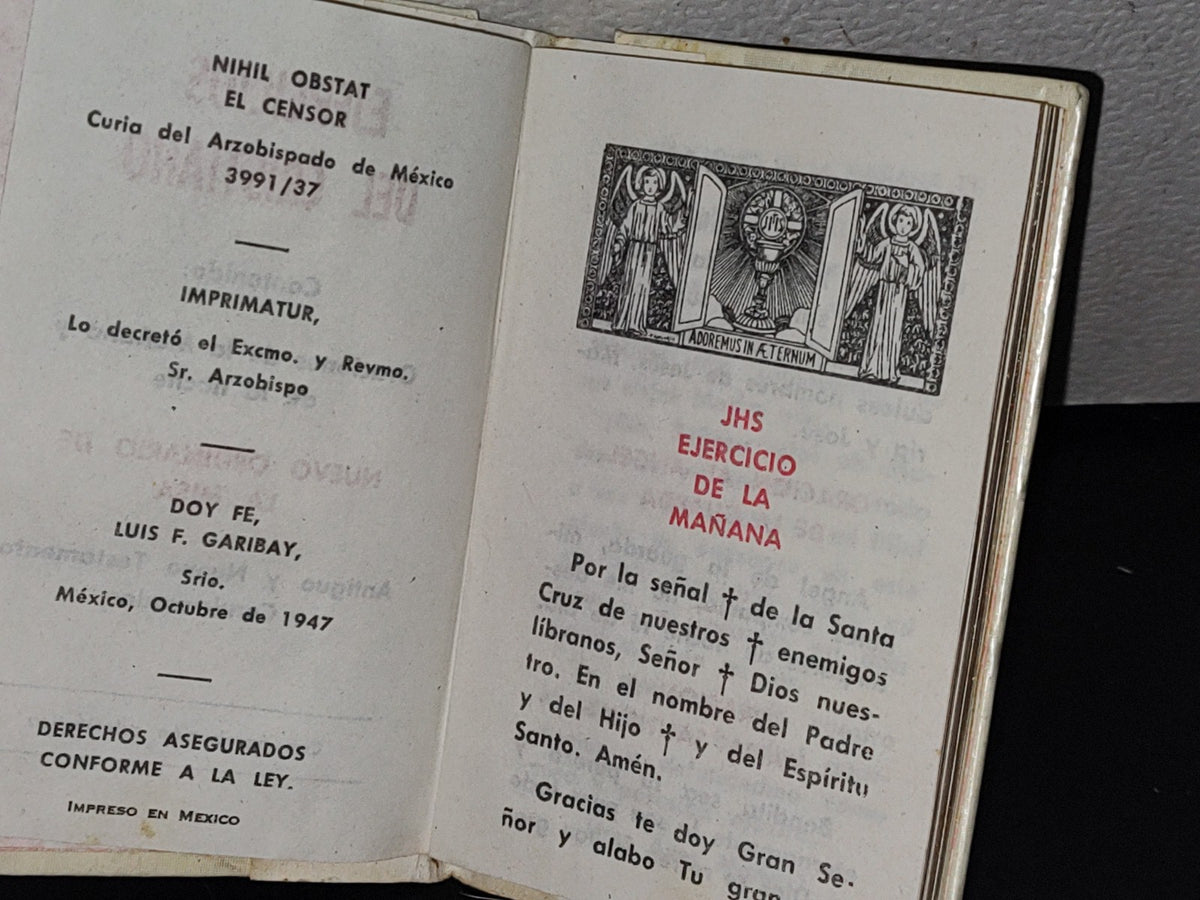 NIHIL OBSTAT
EL CENSOR
Curia del Arzobispado de México
3991/37
IMPRIMATUR,
Lo decretó el Excmo. y Revmo.
Sr. Arzobispo
DOY FE,
LUIS F. GARIBAY,
Srio.
México, Octubre de 1947
DERECHOS ASEGURADOS
CONFORME A LA LEY.
IMPRESO EN MEXICO
JHS
ADOREMUS IN ÆTERNUM
JHS
EJERCICIO
DE LA
MAÑANA
Por la señal † de la Santa
Cruz de nuestros † enemigos
líbranos, Señor † Dios nues-
tro. En el nombre del Padre
y del Hijo † y del Espíritu
Santo. Amén.
Gracias te doy Gran Se-
ñor y alabo Tu gran